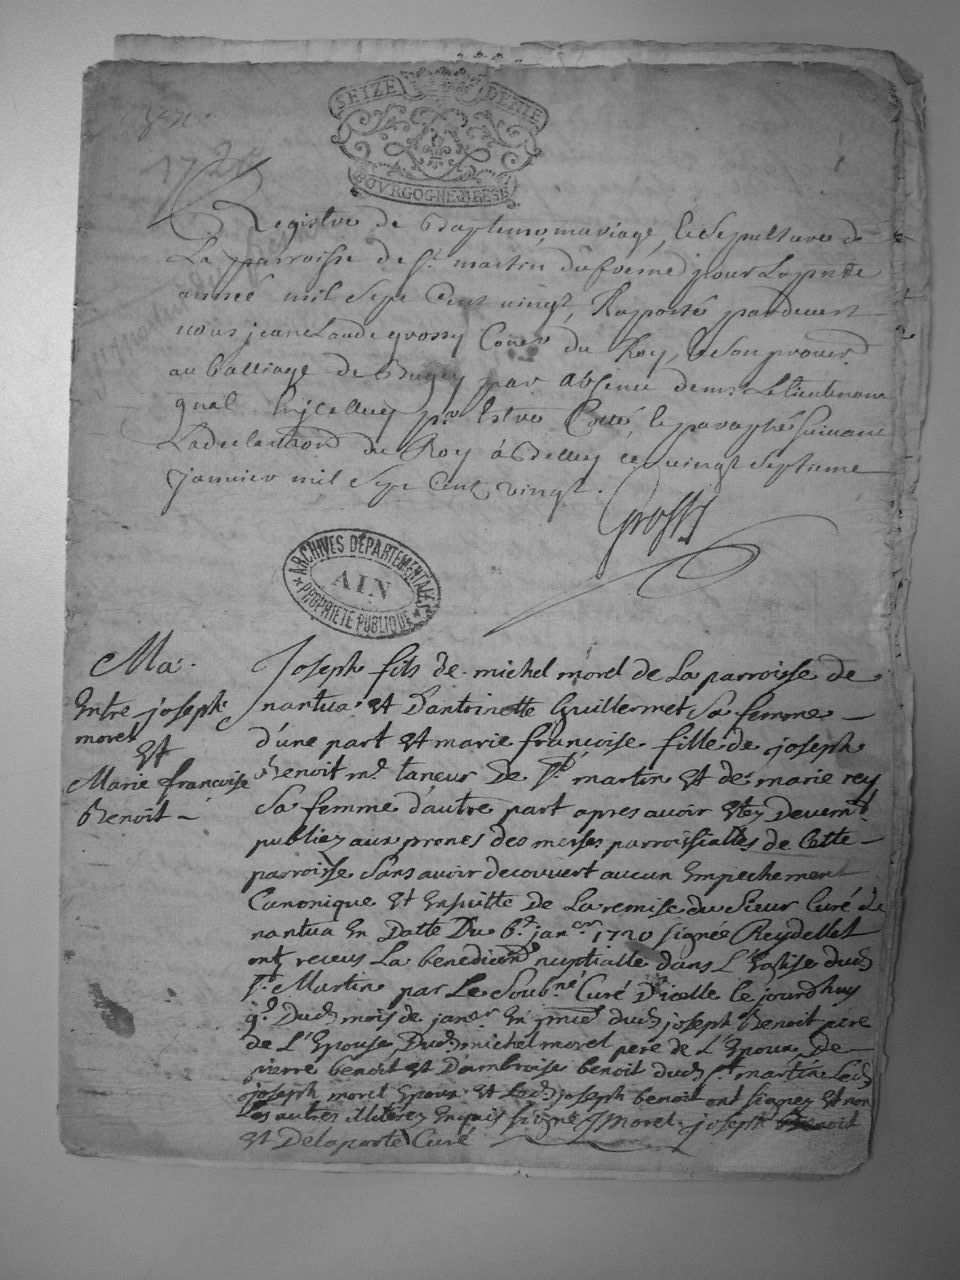 SEIZE DEN DEMIE
BOURGOGNE BRESSE
1720
Registre de Baptemes, mariage, et sepultures de
La parroisse de St. martin du fresne pour La pnte
année mil Sept Cent vingt, Raporté pardevant
nous jean Claude grossy Coner du Roy, et son procur
au balliage de Bugey par absence de mr. Le lieutenant
gnal Enjcelluy pr. Estre Cotté, et paraphé suivant
La declaration du Roy à Belley ce vingt septieme
janvier mil Sept Cent vingt.
Grossy
ARCHIVES DÉPARTEMENTALES
AIN
PROPRIÉTÉ PUBLIQUE
Ma.
Entre joseph
morel
Et
Marie francoise
Benoit
Joseph fils de michel morel de La parroisse de
nantua Et D'antoinette Guillermet Sa femme
d'une part Et marie françoise fille de joseph
Benoit md. taneur De St. martin Et de marie rey
Sa femme d'autre part apres avoir Etez Deuemt
publiez aux prones des messes parroissialles de Cette
parroisse Sans avoir decouvert aucun Empechement
Canonique Et Ensuitte De La remise du Sieur Curé de
nantua En Datte Du 6e. janer 1720 signée Reydellet
ont receus La benediction nuptialle dans L'Eglise dud
St. Martin par Le Soubné Curé D'icelle Ce jourd'huy
9e Dud mois de janer En pnce dud joseph Benoit pere
de L'Epouse, Dud michel morel pere de L'Epoux, De
pierre benoit Et D'ambroise benoit dud St. martin Led
joseph morel Epoux Et Led joseph benoit ont signez Et non
Les autres illiterez Enquis signé J Morel, joseph Benoit
Et Delaporte Curé